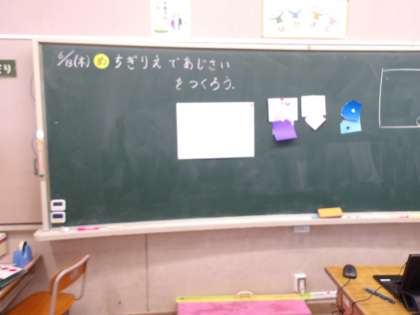 6/13(木) め ちぎりえであじさい
をつくろう。